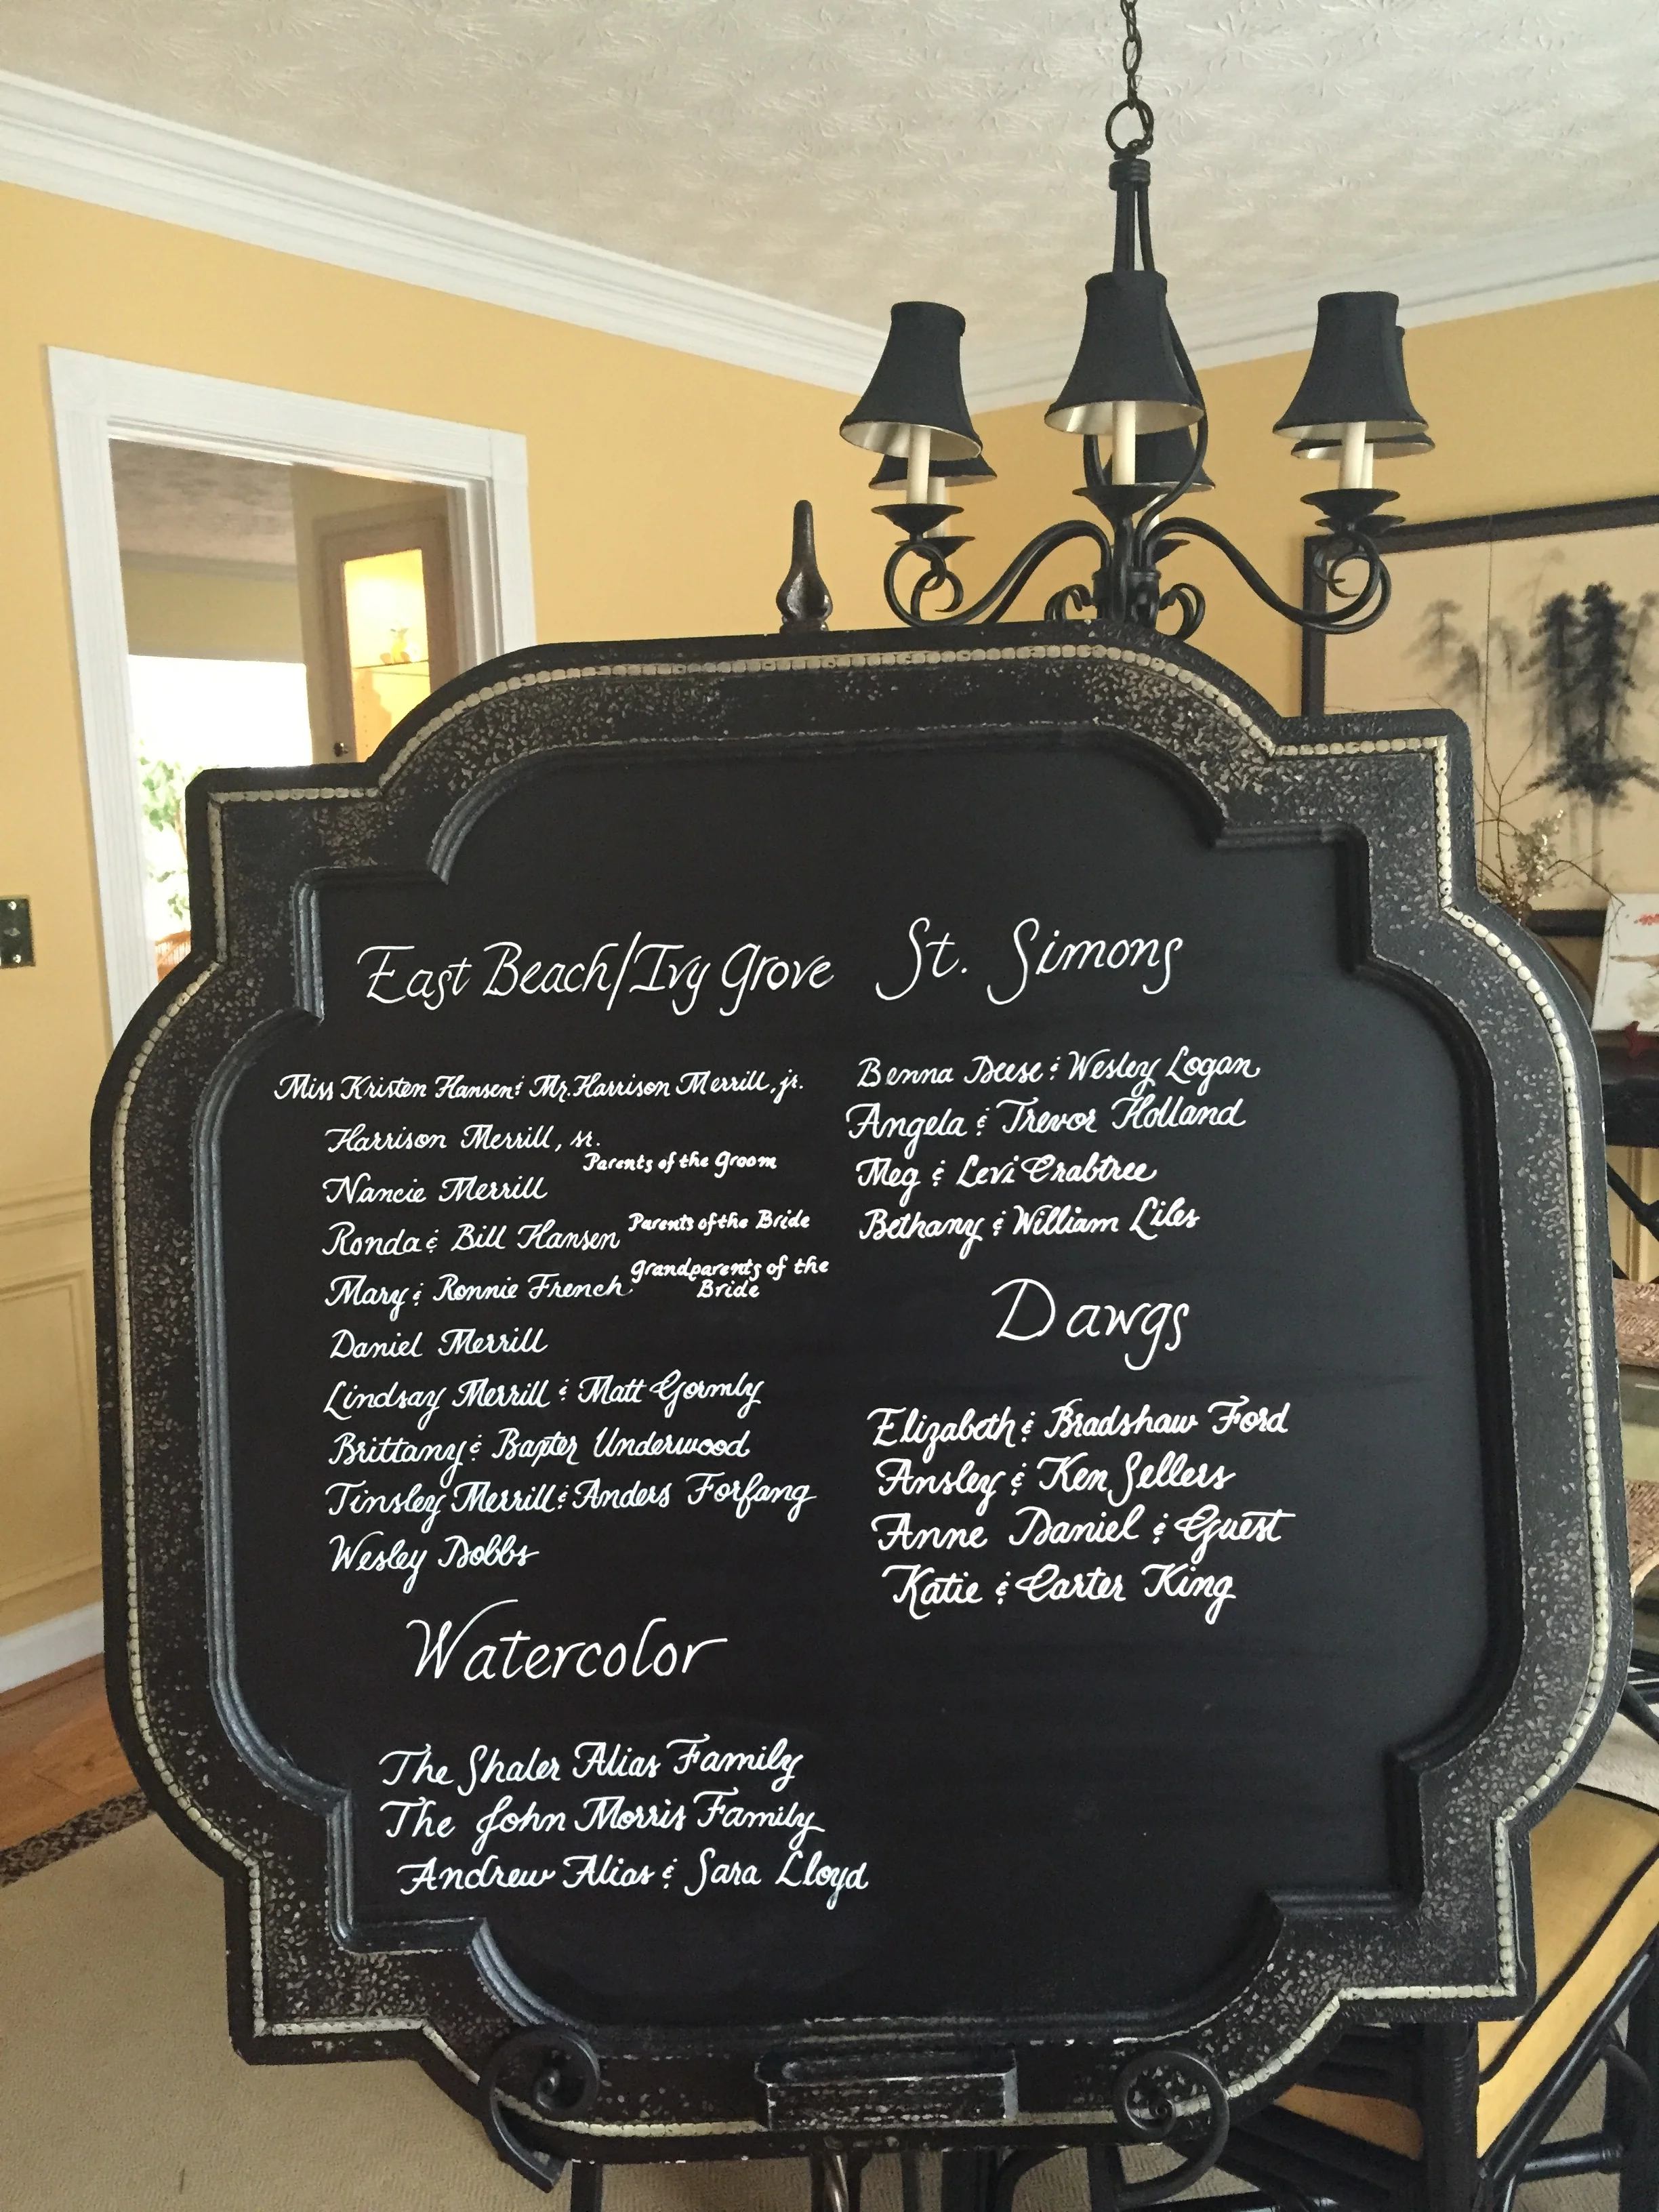 East Beach/Ivy Grove
Miss Kristen Hansen & Mr. Harrison Merrill, jr.
Harrison Merrill, sr.
Parents of the Groom
Nancie Merrill
Ronda & Bill Hansen Parents of the Bride
Mary & Ronnie French Grandparents of the
Bride
Daniel Merrill
Lindsay Merrill & Matt Gormly
Brittany & Baxter Underwood
Tinsley Merrill & Anders Forfang
Wesley Dobbs
Watercolor
The Shaler Alias Family
The John Morris Family
Andrew Alias & Sara Lloyd
St. Simons
Benna Deese & Wesley Logan
Angela & Trevor Holland
Meg & Levi Crabtree
Bethany & William Liles
Dawgs
Elizabeth & Bradshaw Ford
Ansley & Ken Sellers
Anne Daniel & Guest
Katie & Carter King